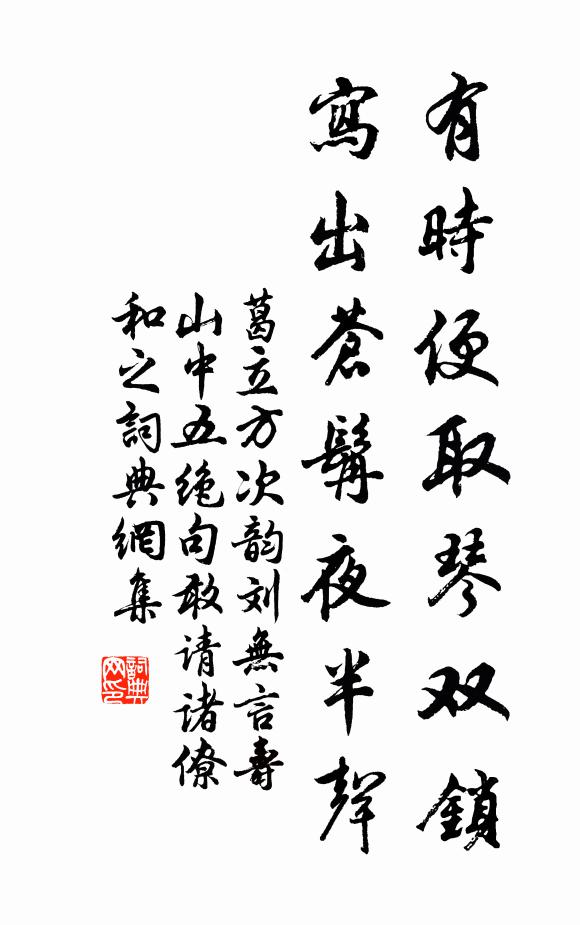 有時便取琴双鎖
寫出蒼髯夜半聲
葛立方次韵刘無言壽
山中五绝句敢请诸僚
和之詞典網集
詞典网印